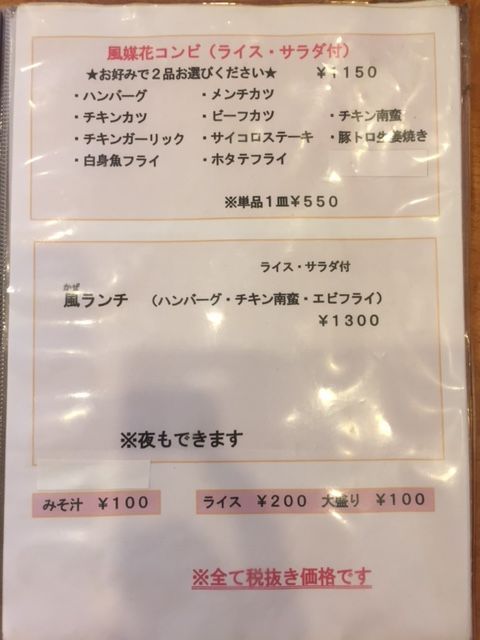 風媒花コンビ（ライス・サラダ付）
★お好みで２品お選びください★　￥１１５０
・ハンバーグ　・メンチカツ
・チキンカツ　・ビーフカツ　・チキン南蛮
・チキンガーリック　・サイコロステーキ　・豚トロ生姜焼き
・白身魚フライ　・ホタテフライ
※単品１皿￥５５０
ライス・サラダ付
かぜ
風ランチ　（ハンバーグ・チキン南蛮・エビフライ）
￥１３００
※夜もできます
みそ汁　￥１００　ライス　￥２００　大盛り　￥１００
※全て税抜き価格です